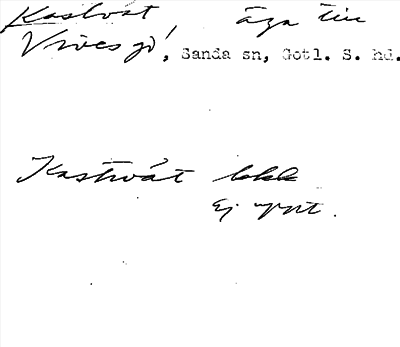 Kastvät äga till
Vives gd, Sanda sn, Gotl. S. hd.
Kastvát
Ej uppt.